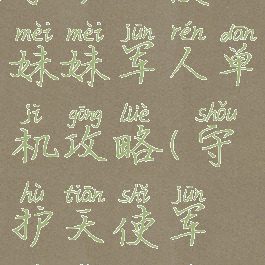 mèi mèi jūn rén dān
妹妹军人单
jī gōng lüè shǒu
机攻略(守
hù tiān shǐ jūn
护天使军